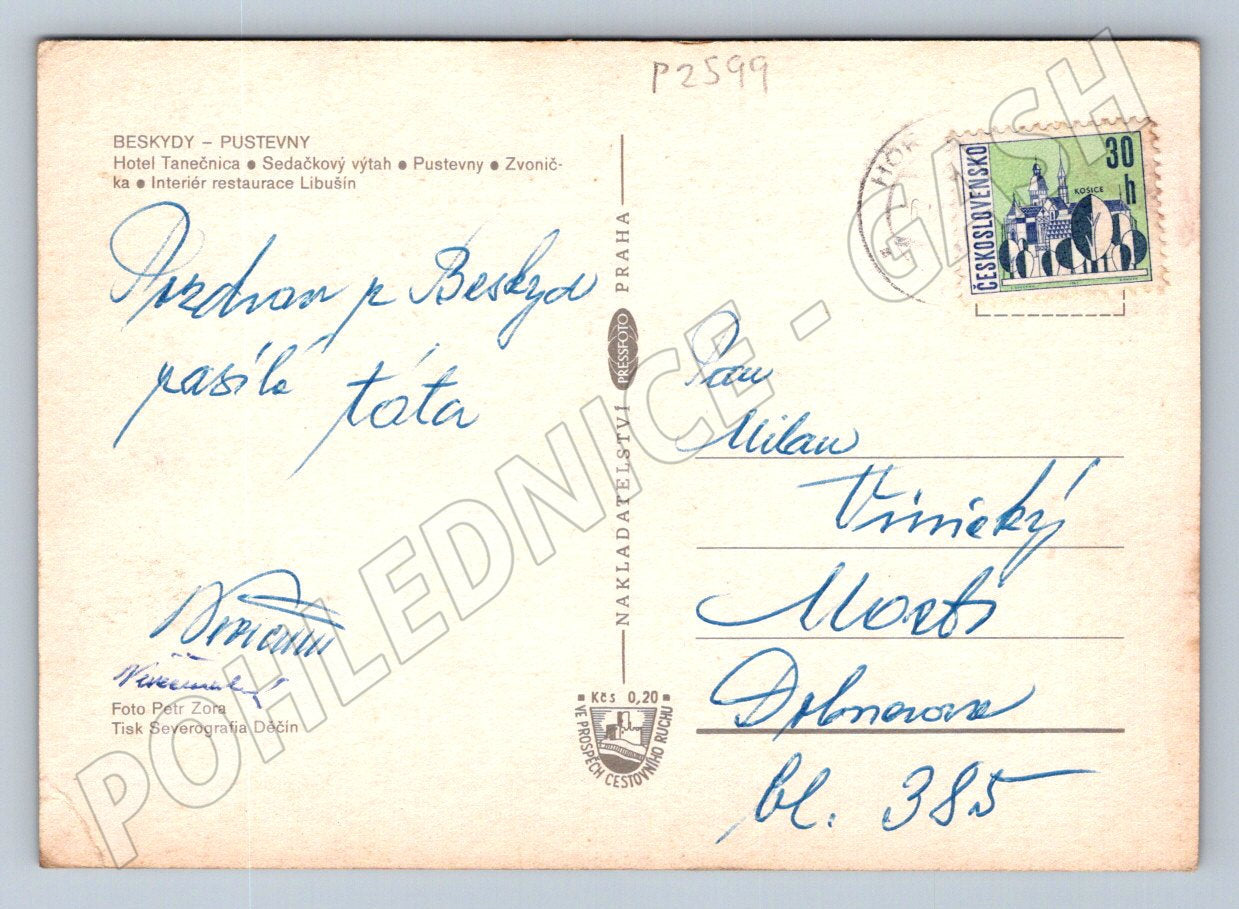 P2599
BESKYDY – PUSTEVNY
Hotel Tanečnica ● Sedačkový výtah ● Pustevny ● Zvonič-
ka ● Interiér restaurace Libušín
Pozdrav z Beskyd
posílá
táta
Foto Petr Zora
Tisk Severografia Děčín
NAKLADATELSTVÍ PRESSFOTO PRAHA
Kčs 0,20
VE PROSPĚCH CESTOVNÍHO RUCHU
HOR
ČESKOSLOVENSKO
30
h
KOŠICE
Pan
Milan
Vinický
Most
bl. 385
POHLEDNICE - GASH